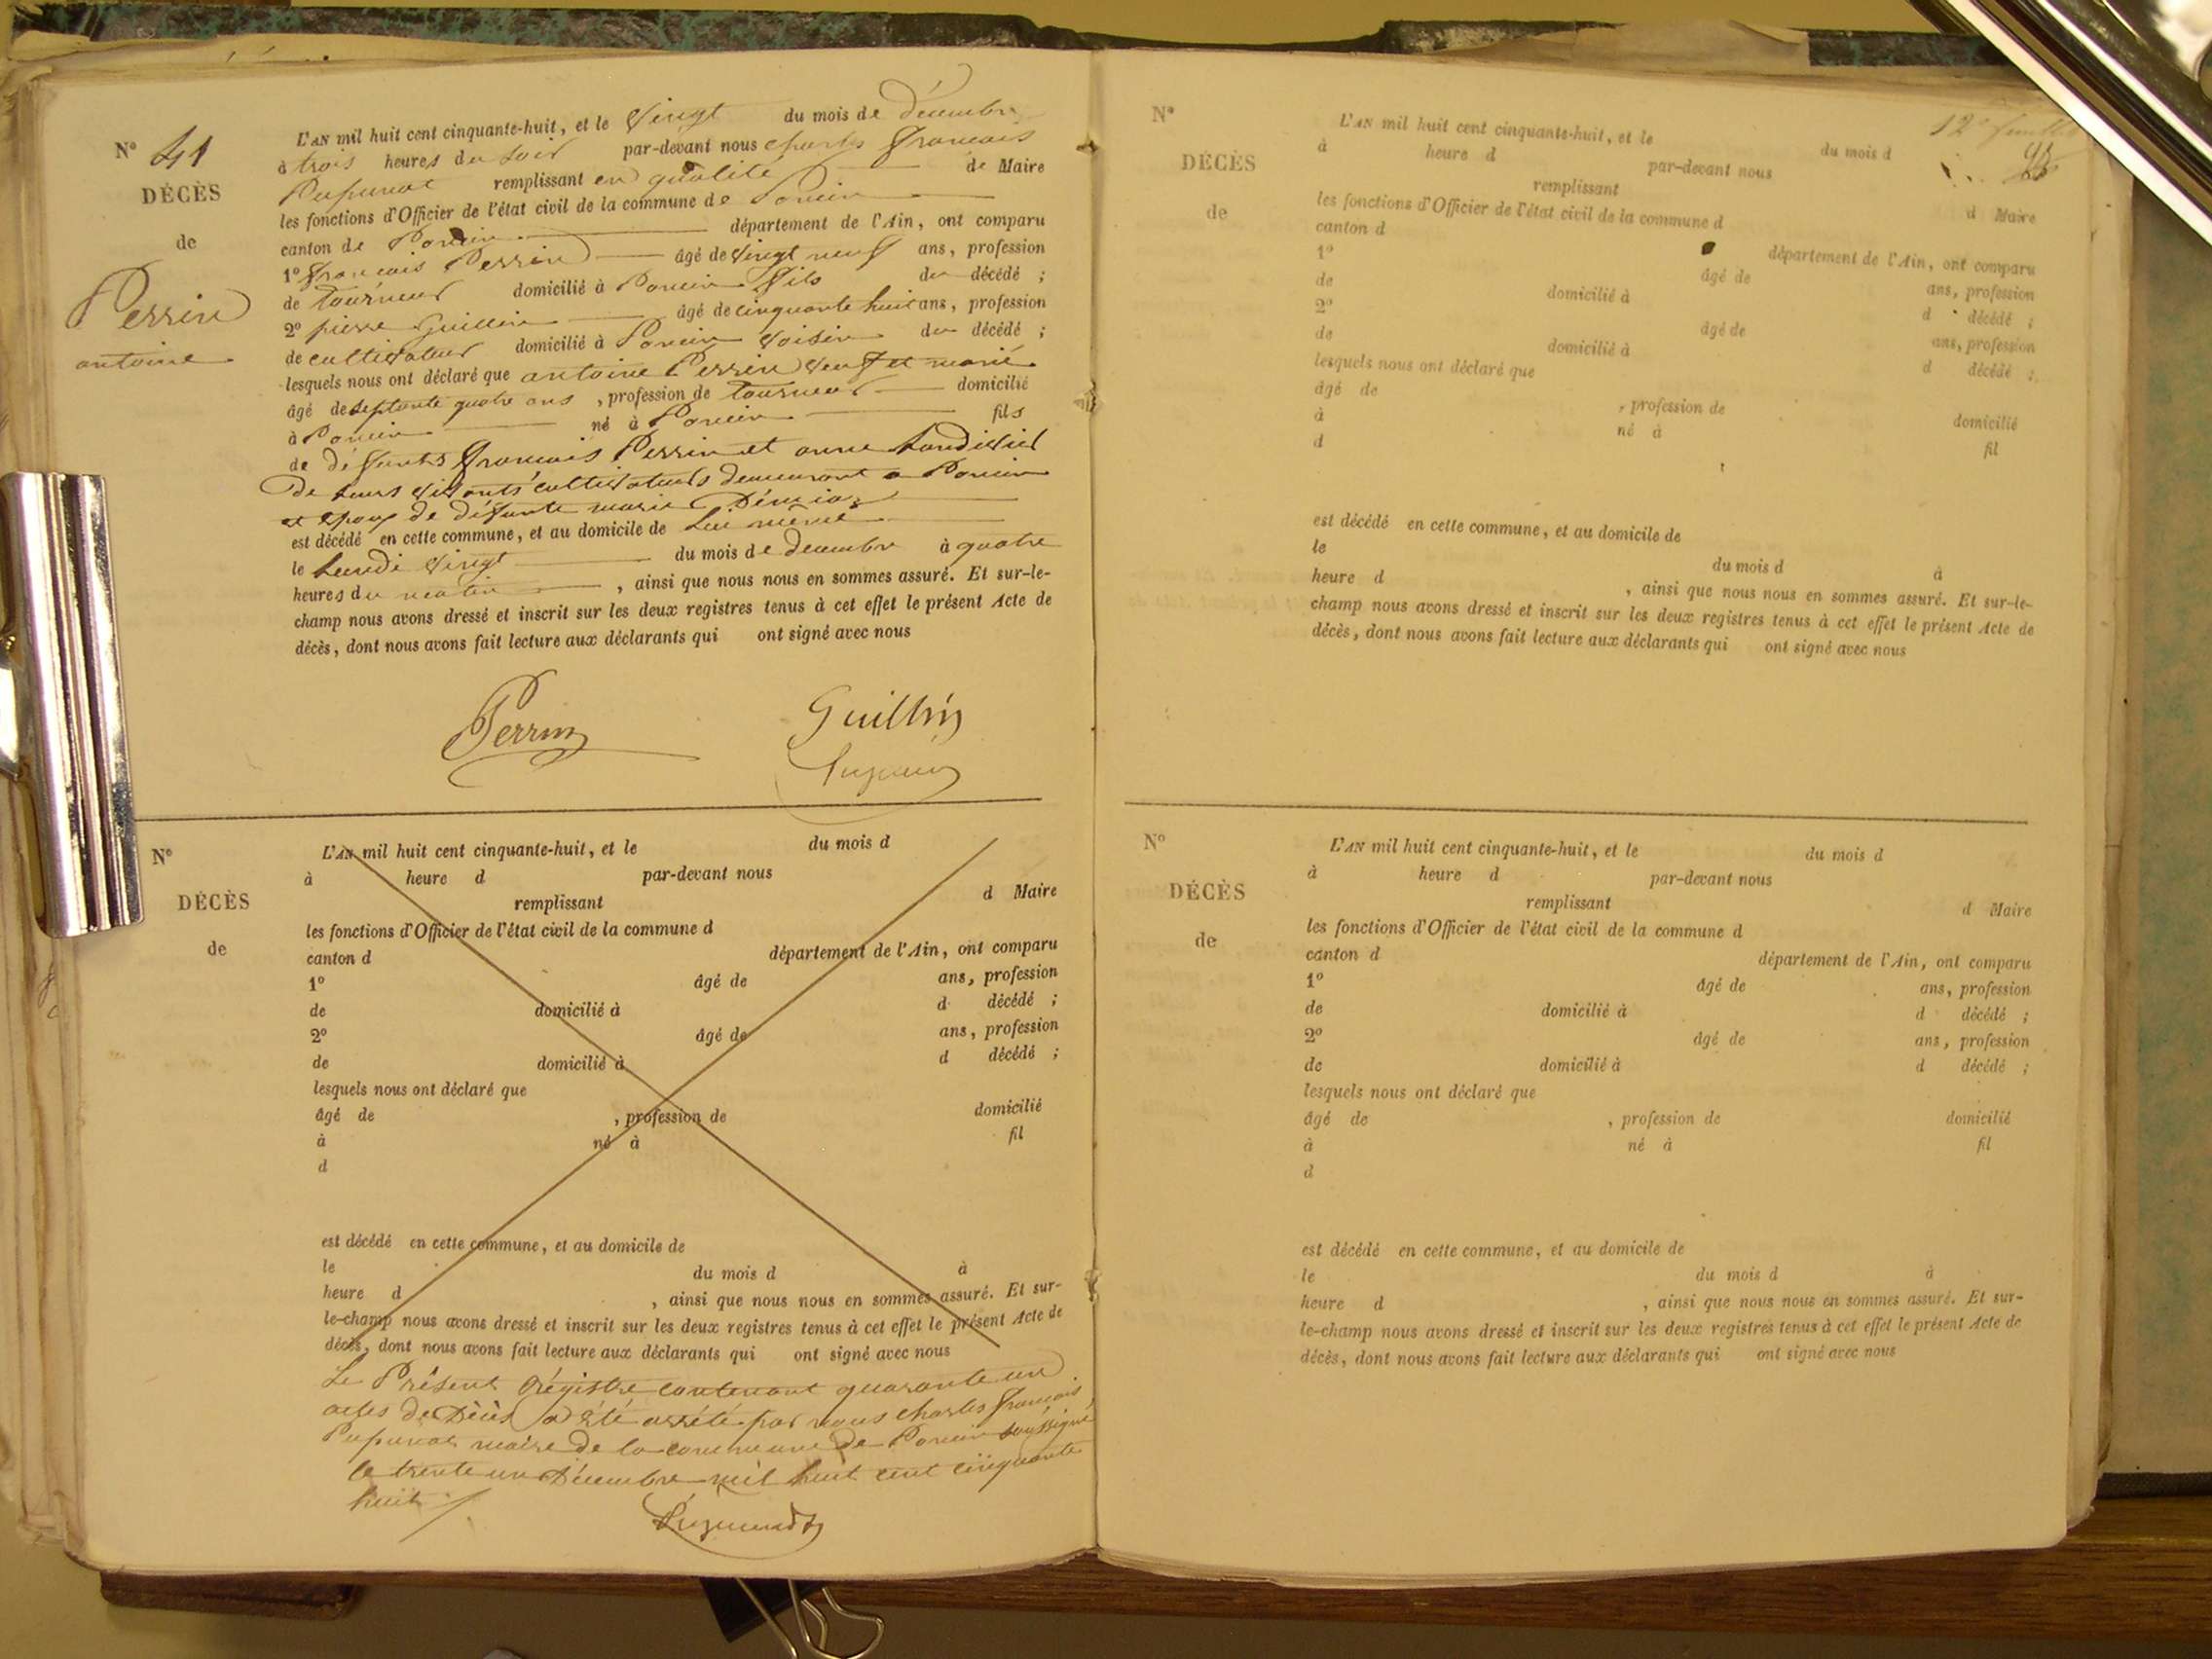 N° 41
DÉCÈS
de
Perrin
antoine
L'AN mil huit cent cinquante-huit, et le vingt du mois de décembre
à trois heures du soir par-devant nous charles francois
remplissant en qualité de Maire
les fonctions d'Officier de l'état civil de la commune de Poncin
canton de Poncin département de l'Ain, ont comparu
1° francois Perrin âgé de vingt neuf ans, profession
de tourneur domicilié à Poncin fils du décédé ;
2° pierre Guillin âgé de cinquante huit ans, profession
de cultivateur domicilié à Poncin voisin du décédé ;
lesquels nous ont déclaré que antoine Perrin veuf et marié
âgé de septante quatre ans , profession de tourneur domicilié
à Poncin né à Poncin fils
de défunts francois Perrin et anne
de leurs vivants cultivateurs demeurant a Poncin
et epoux de défunte marie
est décédé en cette commune, et au domicile de lui même
le lundi vingt du mois de decembre à quatre
heures du matin , ainsi que nous nous en sommes assuré. Et sur-le-
champ nous avons dressé et inscrit sur les deux registres tenus à cet effet le présent Acte de
décès, dont nous avons fait lecture aux déclarants qui ont signé avec nous
Perrin Guillin
N°
DÉCÈS
de
L'AN mil huit cent cinquante-huit, et le du mois d
à heure d par-devant nous
remplissant d Maire
les fonctions d'Officier de l'état civil de la commune d
canton d département de l'Ain, ont comparu
1° âgé de ans, profession
de domicilié à d décédé ;
2° âgé de ans, profession
de domicilié à d décédé ;
lesquels nous ont déclaré que
âgé de , profession de domicilié
à né à fil
d
est décédé en cette commune, et au domicile de
le du mois d à
heure d , ainsi que nous nous en sommes assuré. Et sur-
le-champ nous avons dressé et inscrit sur les deux registres tenus à cet effet le présent Acte de
décès, dont nous avons fait lecture aux déclarants qui ont signé avec nous
Le Présent Régistre contenant quarante un
actes de Décès a été arrêté par nous charles francois
maire de la commune de Poncin soussigné
le trente un Décembre mil huit cent cinquante
huit
12e feuillet
N°
DÉCÈS
de
L'AN mil huit cent cinquante-huit, et le du mois d
à heure d par-devant nous
remplissant d Maire
les fonctions d'Officier de l'état civil de la commune d
canton d département de l'Ain, ont comparu
1° âgé de ans, profession
de domicilié à d décédé ;
2° âgé de ans, profession
de domicilié à d décédé ;
lesquels nous ont déclaré que
âgé de , profession de domicilié
à né à fil
d
est décédé en cette commune, et au domicile de
le du mois d à
heure d , ainsi que nous nous en sommes assuré. Et sur-le-
champ nous avons dressé et inscrit sur les deux registres tenus à cet effet le présent Acte de
décès, dont nous avons fait lecture aux déclarants qui ont signé avec nous
N°
DÉCÈS
de
L'AN mil huit cent cinquante-huit, et le du mois d
à heure d par-devant nous
remplissant d Maire
les fonctions d'Officier de l'état civil de la commune d
canton d département de l'Ain, ont comparu
1° âgé de ans, profession
de domicilié à d décédé ;
2° âgé de ans, profession
de domicilié à d décédé ;
lesquels nous ont déclaré que
âgé de , profession de domicilié
à né à fil
d
est décédé en cette commune, et au domicile de
le du mois d à
heure d , ainsi que nous nous en sommes assuré. Et sur-
le-champ nous avons dressé et inscrit sur les deux registres tenus à cet effet le présent Acte de
décès, dont nous avons fait lecture aux déclarants qui ont signé avec nous